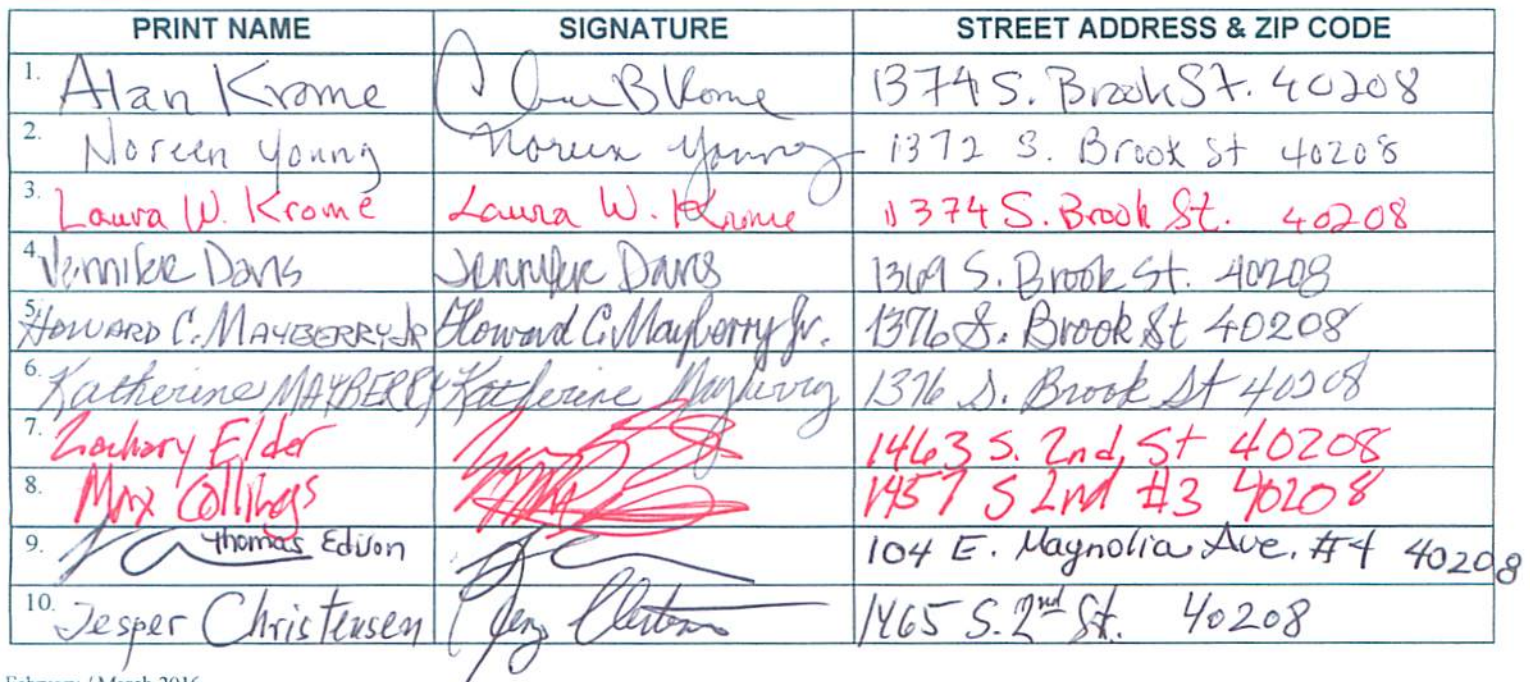 PRINT NAME SIGNATURE STREET ADDRESS & ZIP CODE
1. Alan Krome Alan B Krome 1374 S. Brook St. 40208
2. Noreen Young Noreen Young 1372 S. Brook St 40208
3. Laura W. Krome Laura W. Krome 1374 S. Brook St. 40208
4. Jennifer Davis Jennifer Davis 1369 S. Brook St. 40208
5. HOWARD C. MAYBERRY JR Howard C. Mayberry Jr. 1376 S. Brook St 40208
6. Katherine MAYBERRY Katherine Mayberry 1376 S. Brook St 40208
7. Zachary Elder 1463 S. 2nd St 40208
8. Max Collings 1457 S 2nd #3 40208
9. Thomas Edison 104 E. Magnolia Ave. #4 40208
10. Jesper Christensen 1465 S. 2nd St. 40208
February / March 2016